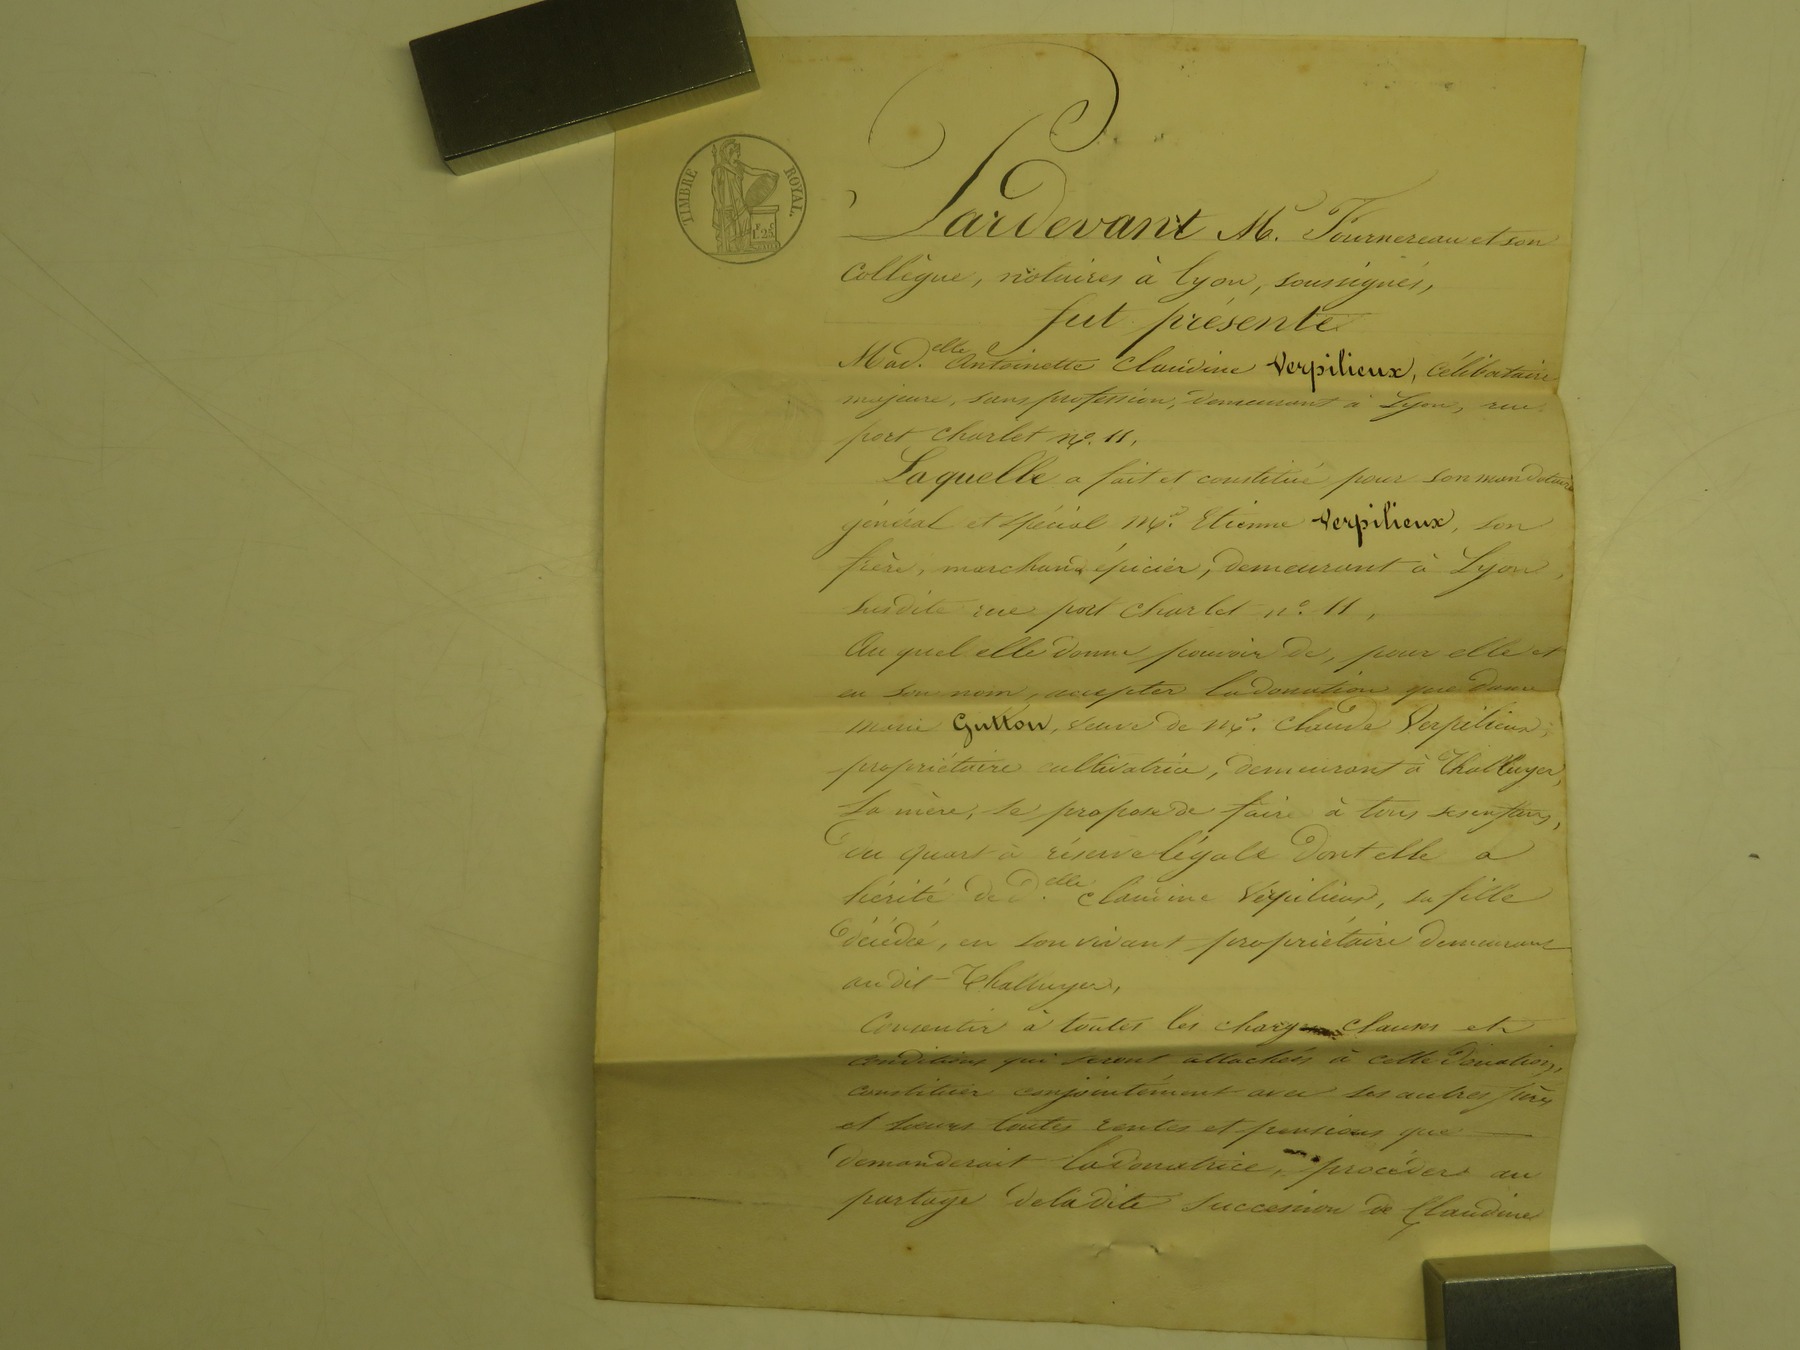 TIMBRE ROYAL.
1.F 25.C
Pardevant Me. Tournereau et son
collègue, notaires à Lyon, soussignés,
fut présente
Mad.elle Antoinette Claudine Verpilieux, célibataire
majeure, sans profession, demeurant à Lyon, rue
port charlet no. 11,
Laquelle a fait et constitué pour son mandataire
général et spécial Mr. Etienne Verpilieux, son
frère, marchand épicier, demeurant à Lyon,
susdite rue port charlet no. 11,
Au quel elle donne pouvoir de, pour elle et
en son nom, accepter la donation que dame
Marie Gutton, veuve de Mr. Claude Verpilieux,
propriétaire cultivatrice, demeurant à Thalluyer,
sa mère, se propose de faire à tous ses enfans,
du quart à réserve légale dont elle a
hérité de d.elle Claudine Verpilieux, sa fille
décédée, en son vivant propriétaire demeurant
audit Thalluyer,
Consentir à toutes les charges clauses et
conditions qui seront attachées à cette donation,
constituer conjointement avec ses autres frères
et sœurs toutes rentes et pensions que
demanderait la donatrice, procéder au
partage de ladite succession de Claudine